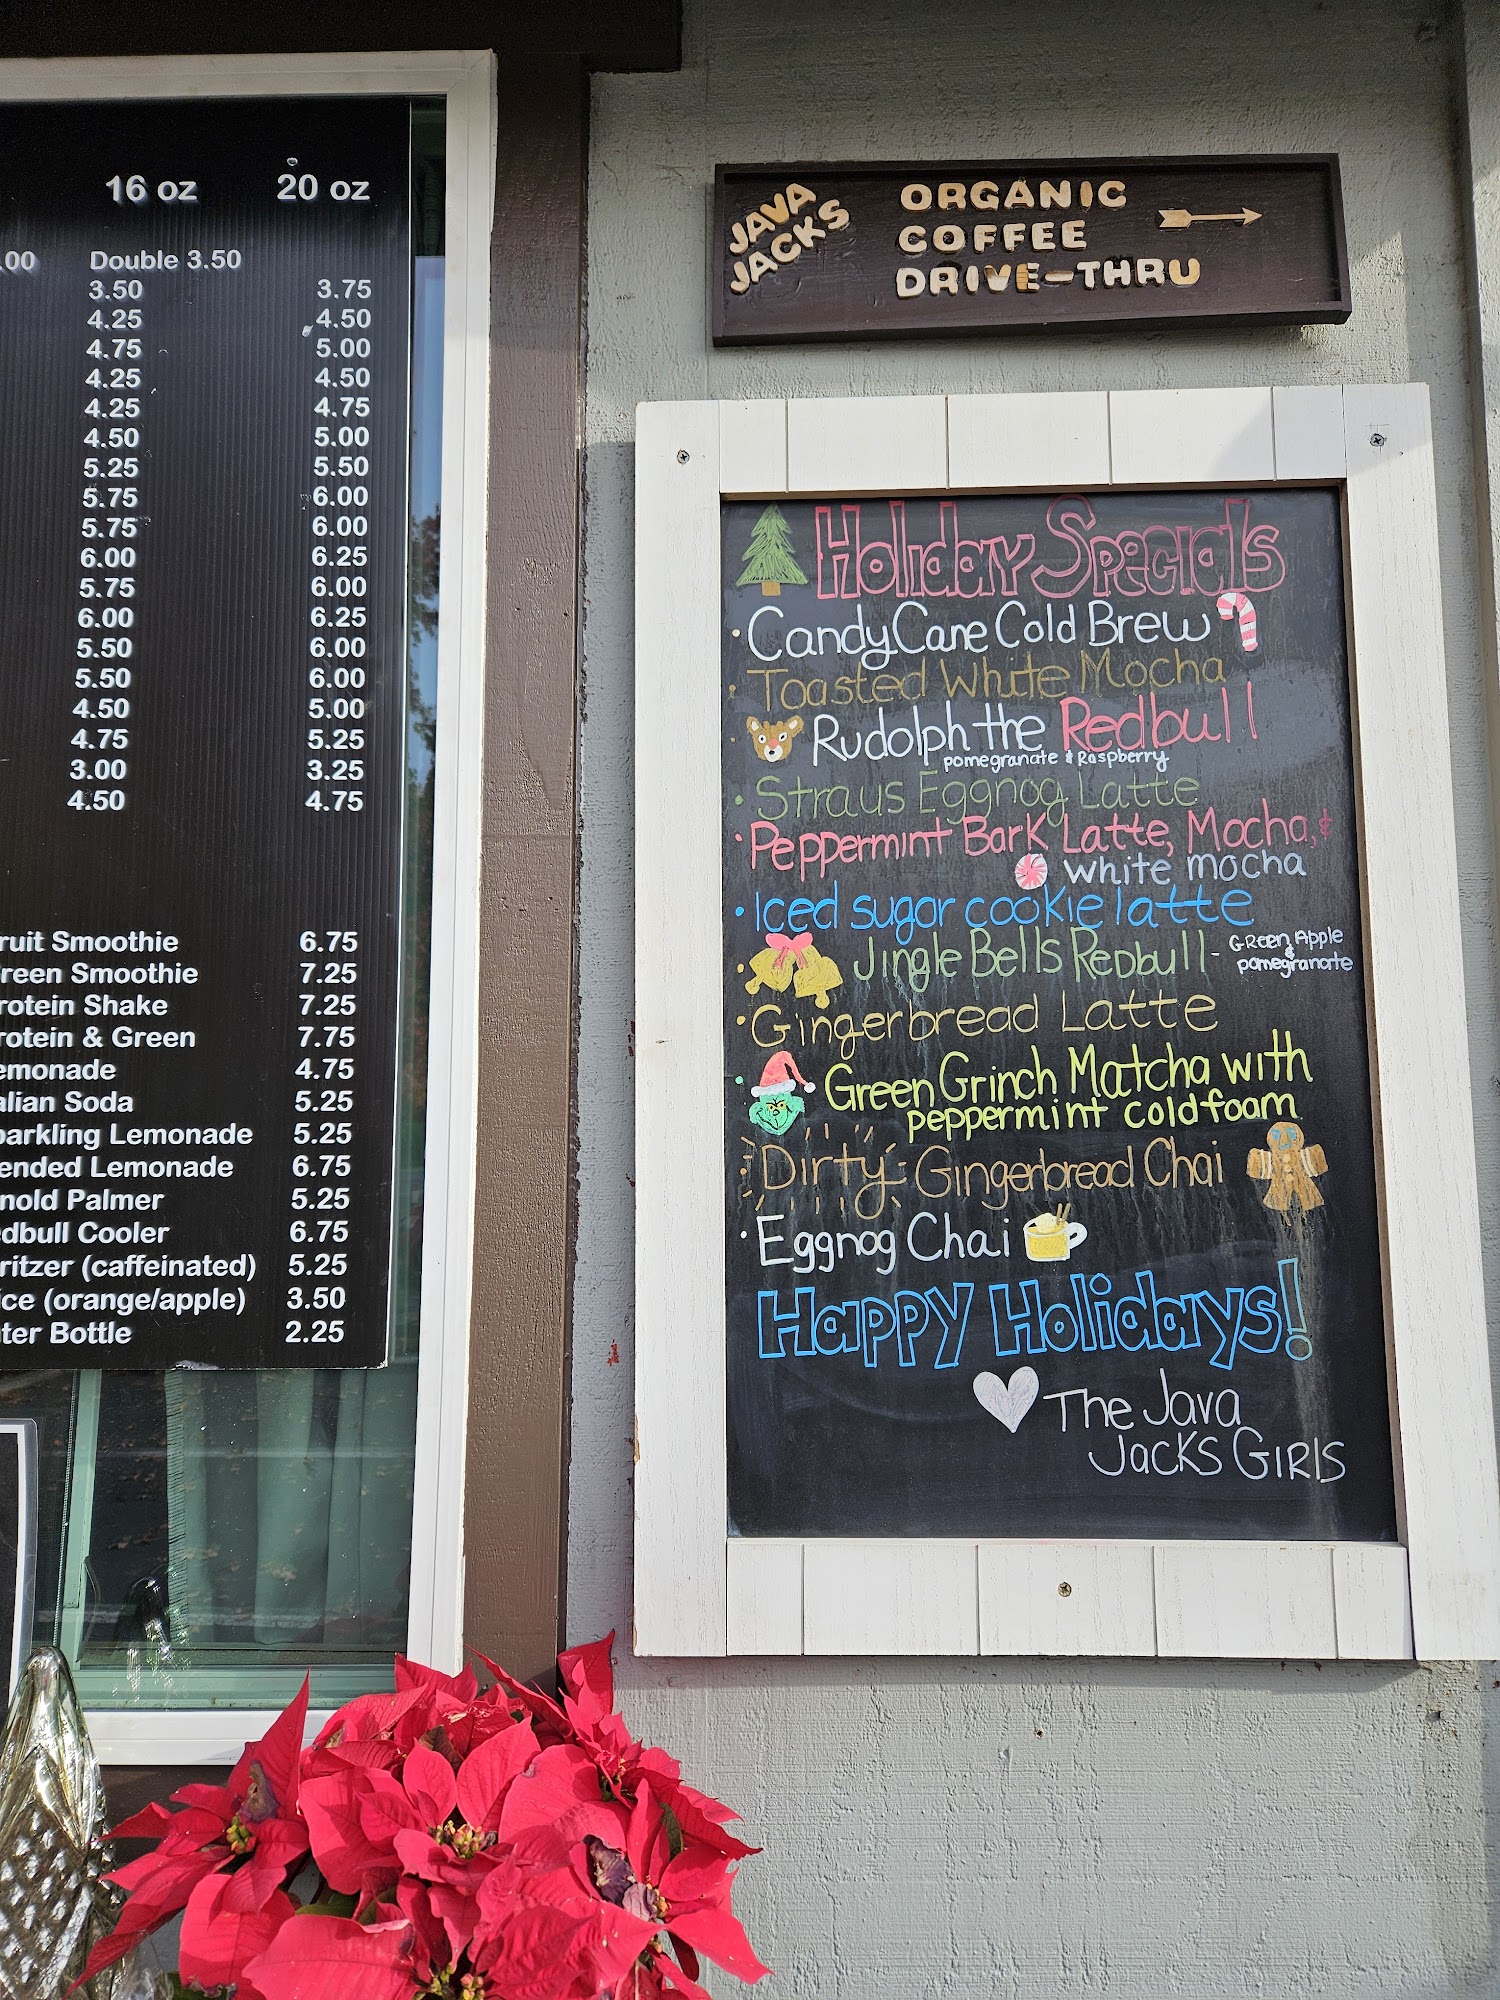 16 oz 20 oz
.00 Double 3.50
3.50 3.75
4.25 4.50
4.75 5.00
4.25 4.50
4.25 4.75
4.50 5.00
5.25 5.50
5.75 6.00
5.75 6.00
6.00 6.25
5.75 6.00
6.00 6.25
5.50 6.00
5.50 6.00
4.50 5.00
4.75 5.25
3.00 3.25
4.50 4.75
ruit Smoothie 6.75
reen Smoothie 7.25
rotein Shake 7.25
rotein & Green 7.75
emonade 4.75
alian Soda 5.25
parkling Lemonade 5.25
ended Lemonade 6.75
nold Palmer 5.25
edbull Cooler 6.75
ritzer (caffeinated) 5.25
ice (orange/apple) 3.50
ater Bottle 2.25
JAVA
JACKS
ORGANIC
COFFEE
DRIVE-THRU
Holiday Specials
• Candy Cane Cold Brew
• Toasted White Mocha
Rudolph the Redbull
pomegranate & Raspberry
• Straus Eggnog Latte
• Peppermint Bark Latte, Mocha, &
white mocha
• Iced sugar cookie latte
• Jingle Bells Redbull - Green Apple
& pomegranate
• Gingerbread Latte
• Green Grinch Matcha with
peppermint cold foam
• Dirty - Gingerbread Chai
• Eggnog Chai
Happy Holidays!
The Java
Jacks Girls